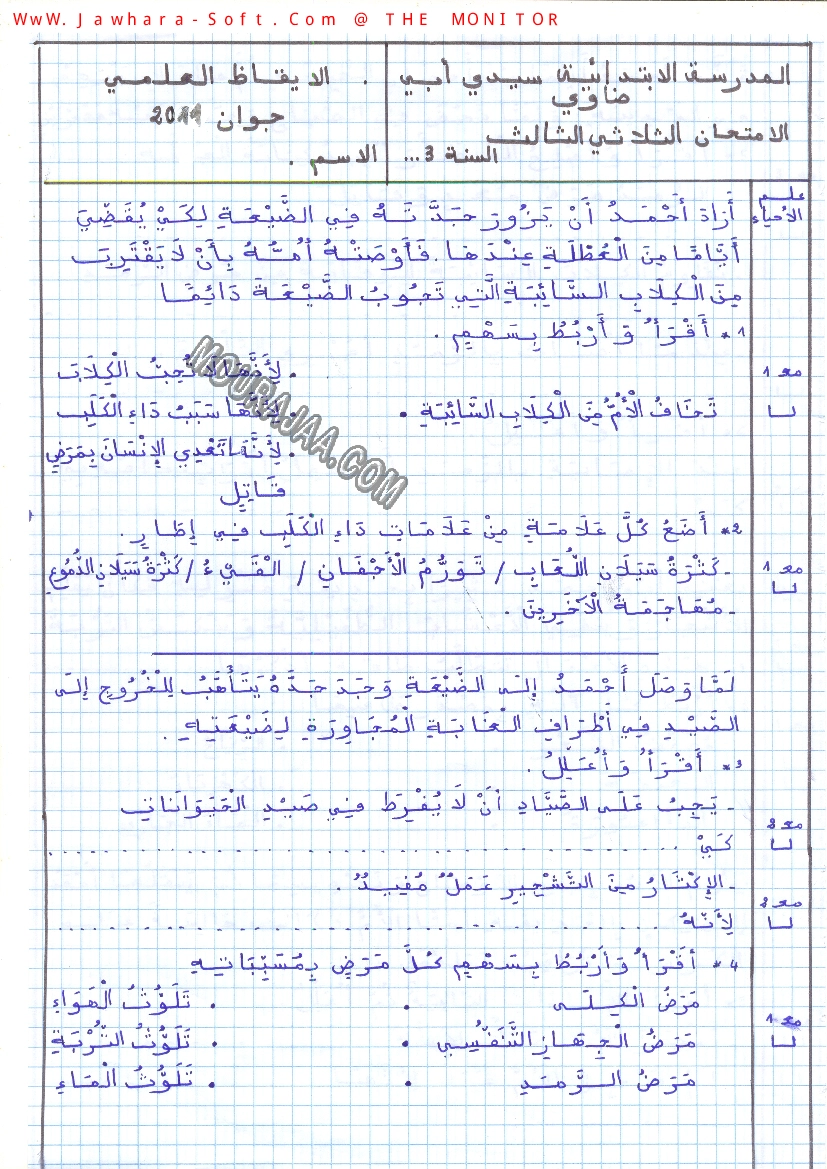 WwW.Jawhara-Soft.Com @ THE MONITOR
المدرسة الابتدائية سيدي أبي ضاوي
الامتحان الثلاثي الثالث
السنة 3...
الايقاظ العلمي
جوان 2011
الاسم .
علم الأحياء
أَرَادَ أَحْمَدُ أَنْ يَزُورَ جَدَّتَهُ فِي الضَّيْعَةِ لِكَيْ يُقَضِّيَ
أَيَّامًا مِنَ الْعُطْلَةِ عِنْدَهَا. فَأَوْصَتْهُ أُمُّهُ بِأَنْ لَا يَقْتَرِبَ
مِنَ الْكِلَابِ السَّائِبَةِ الَّتِي تَجُوبُ الضَّيْعَةَ دَائِمًا
1* أَقْرَأُ وَ أَرْبُطُ بِسَهْمٍ .
مع 1
. لِأَنَّهَا لَا تُحِبُّ الْكِلَابَ
تَخَافُ الْأُمُّ مِنَ الْكِلَابِ السَّائِبَةِ .
. لِأَنَّهَا سَبَبُ دَاءِ الْكَلَبِ
. لِأَنَّهَا تُعْدِي الإِنْسَانَ بِمَرَضٍ
قَاتِلٍ
MOURAJAA.COM
2* أَضَعُ كُلَّ عَلَامَةٍ مِنْ عَلَامَاتِ دَاءِ الْكَلَبِ فِي إِطَارٍ.
مع 1
- كَثْرَةُ سَيَلَانِ اللُّعَابِ / تَوَرُّمُ الْأَجْفَانِ / الْقَيْءُ / كَثْرَةُ سَيَلَانِ الدُّمُوعِ
- مُهَاجَمَةُ الْآخَرِينَ .
لَمَّا وَصَلَ أَحْمَدُ إِلَى الضَّيْعَةِ وَجَدَ جَدَّهُ يَتَأَهَّبُ لِلْخُرُوجِ إِلَى
الصَّيْدِ فِي أَطْرَافِ الْغَابَةِ الْمُجَاوِرَةِ لِضَيْعَتِهِ .
3* أَقْرَأُ وَ أُعَلِّلُ .
- يَجِبُ عَلَى الصَّيَّادِ أَنْ لَا يُفْرِطَ فِي صَيْدِ الْحَيَوَانَاتِ
مع 2
كَيْ ........................................
- الإِكْثَارُ مِنَ التَّشْجِيرِ عَمَلٌ مُفِيدٌ .
مع 2
لِأَنَّهُ ........................................
4* أَقْرَأُ وَأَرْبُطُ بِسَهْمٍ كُلَّ مَرَضٍ بِمُسَبِّبَاتِهِ
مَرَضُ الْكِلَى . . تَلَوُّثُ الْهَوَاءِ
مع 1
مَرَضُ الْجِهَازِ التَّنَفُّسِي . . تَلَوُّثُ التُّرْبَةِ
مَرَضُ الرَّمَدِ . . تَلَوُّثُ الْمَاءِ